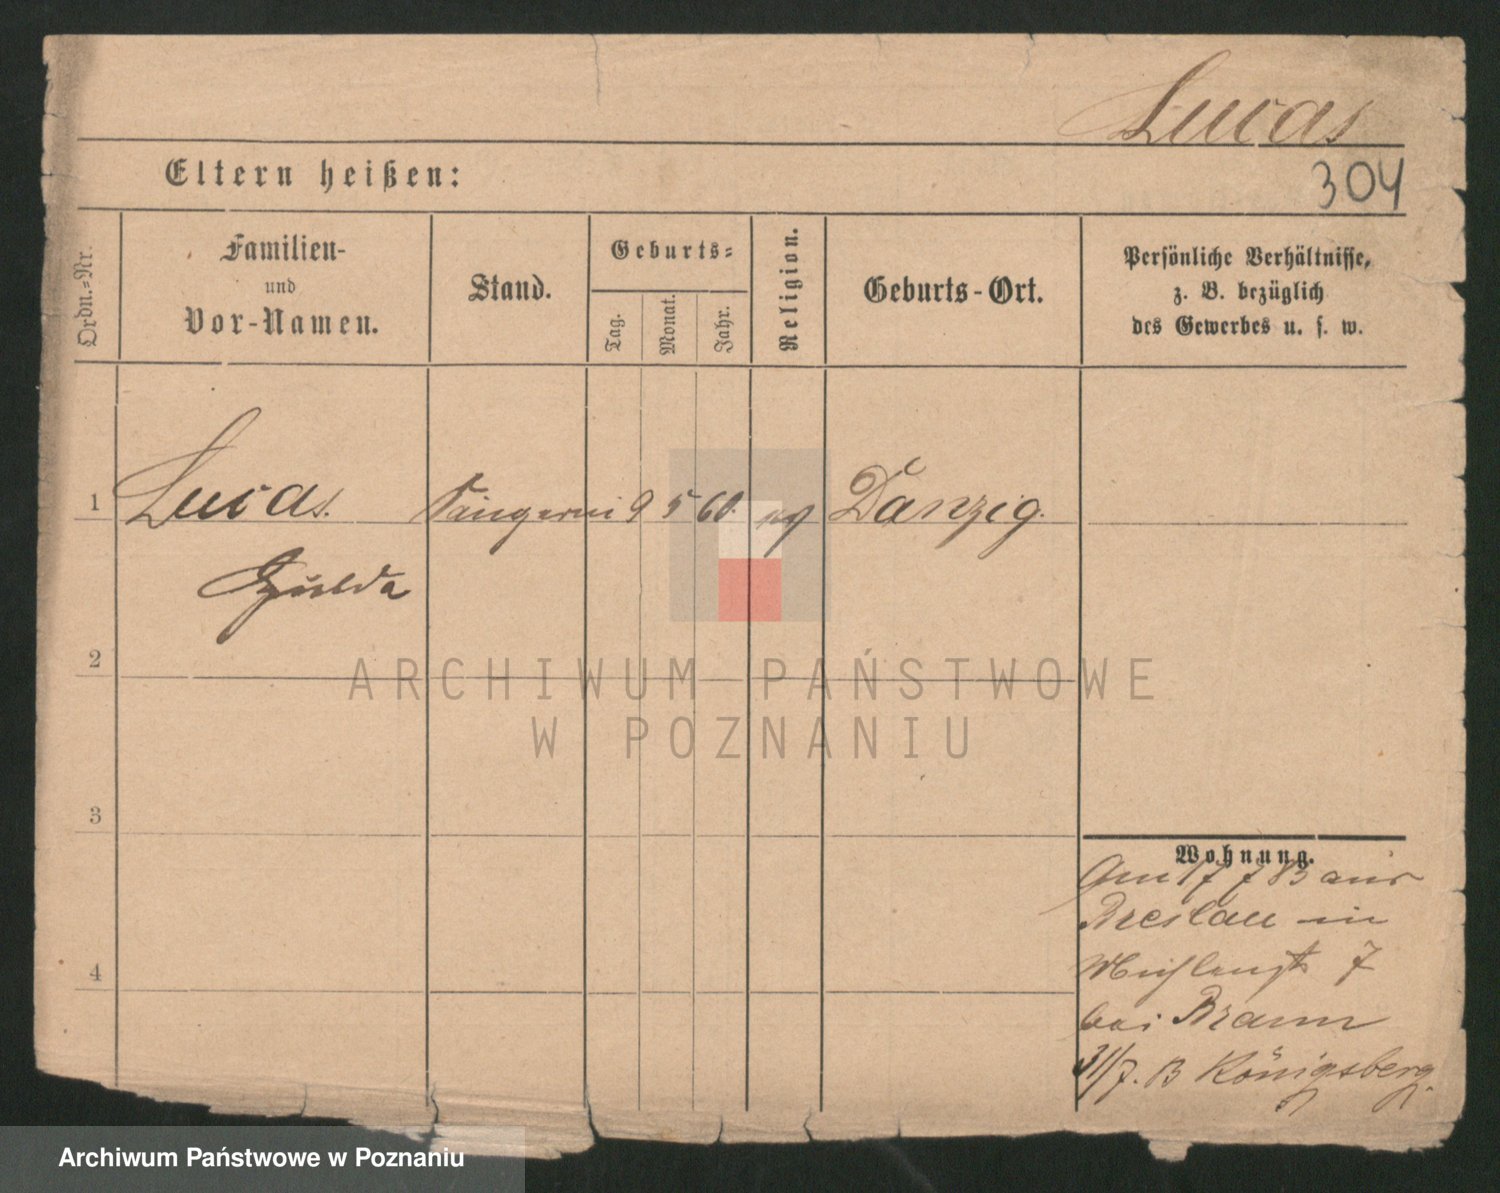 Lucas
304
Eltern heißen:
Ordn.-Nr.
Familien-
und
Vor-Namen.
Stand.
Geburts-
Tag.
Monat.
Jahr.
Religion.
Geburts-Ort.
Persönliche Verhältnisse,
z. B. bezüglich
des Gewerbes u. s. w.
1
Lucas. Sängerin 9 5 60. Danzig.
Hulda
2
ARCHIWUM PAŃSTWOWE
W POZNANIU
3
Wohnung.
Breslau in
4
7
bei Braun
31/7. Königsberg.
Archiwum Państwowe w Poznaniu